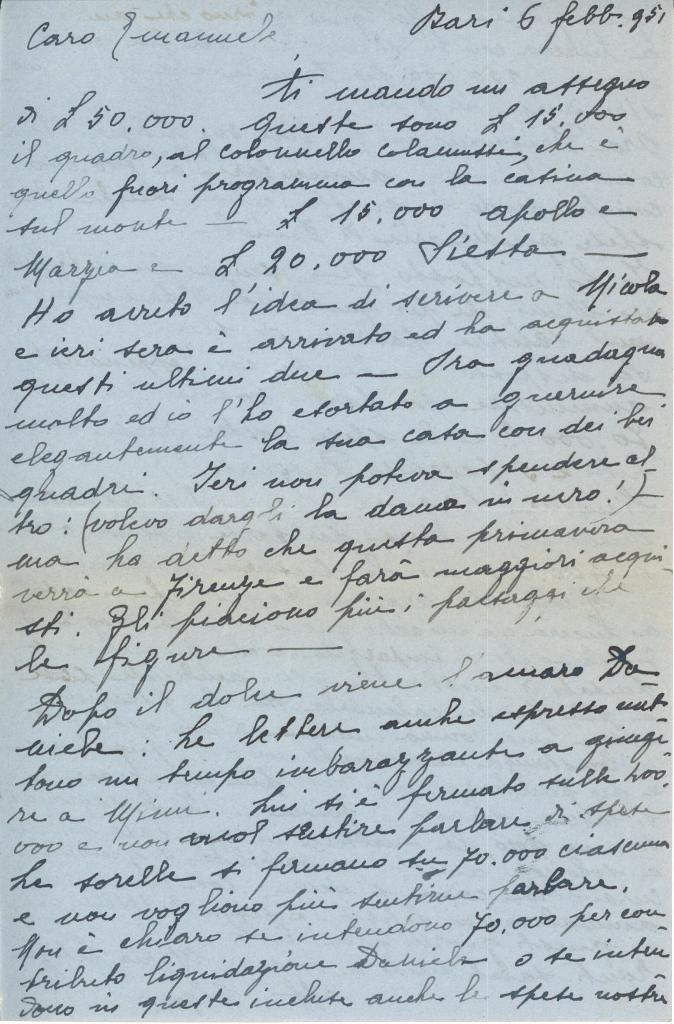 Bari 6 febb. 951
Caro Emanuele
ti mando un assegno
di £ 50.000. Queste sono £ 15.000
il quadro, al colonnello colamussi, che è
quello fuori programma con la casina
sul monte — £ 15.000 apollo e
Marzia e £ 20.000 Siesta —
Ho avuto l'idea di scrivere a Nicola
e ieri sera è arrivato ed ha acquistato
questi ultimi due — Ora guadagna
molto ed io l'ho esortato a guernire
elegantemente la sua casa con dei bei
quadri. Ieri non poteva spendere al-
tro: (volevo dargli la dama in nero!) —
ma ha detto che questa primavera
verrà a Firenze e farà maggiori acqui
sti. Gli piaciono più i paesaggi che
le figure —
Dopo il dolce viene l'amaro Da
niele: le lettere anche espresso met
tono un tempo imbarazzante a giunge
re a Mimi. Lui si è fermato sulle
000 e non vuol sentire parlare di spese
le sorelle si fermano su 70.000 ciascuna
e non vogliono più sentirne parlare.
Non è chiaro se intendono 70.000 per con
tributo liquidazione Daniele o se inten
dono in queste incluse anche le spese nostre